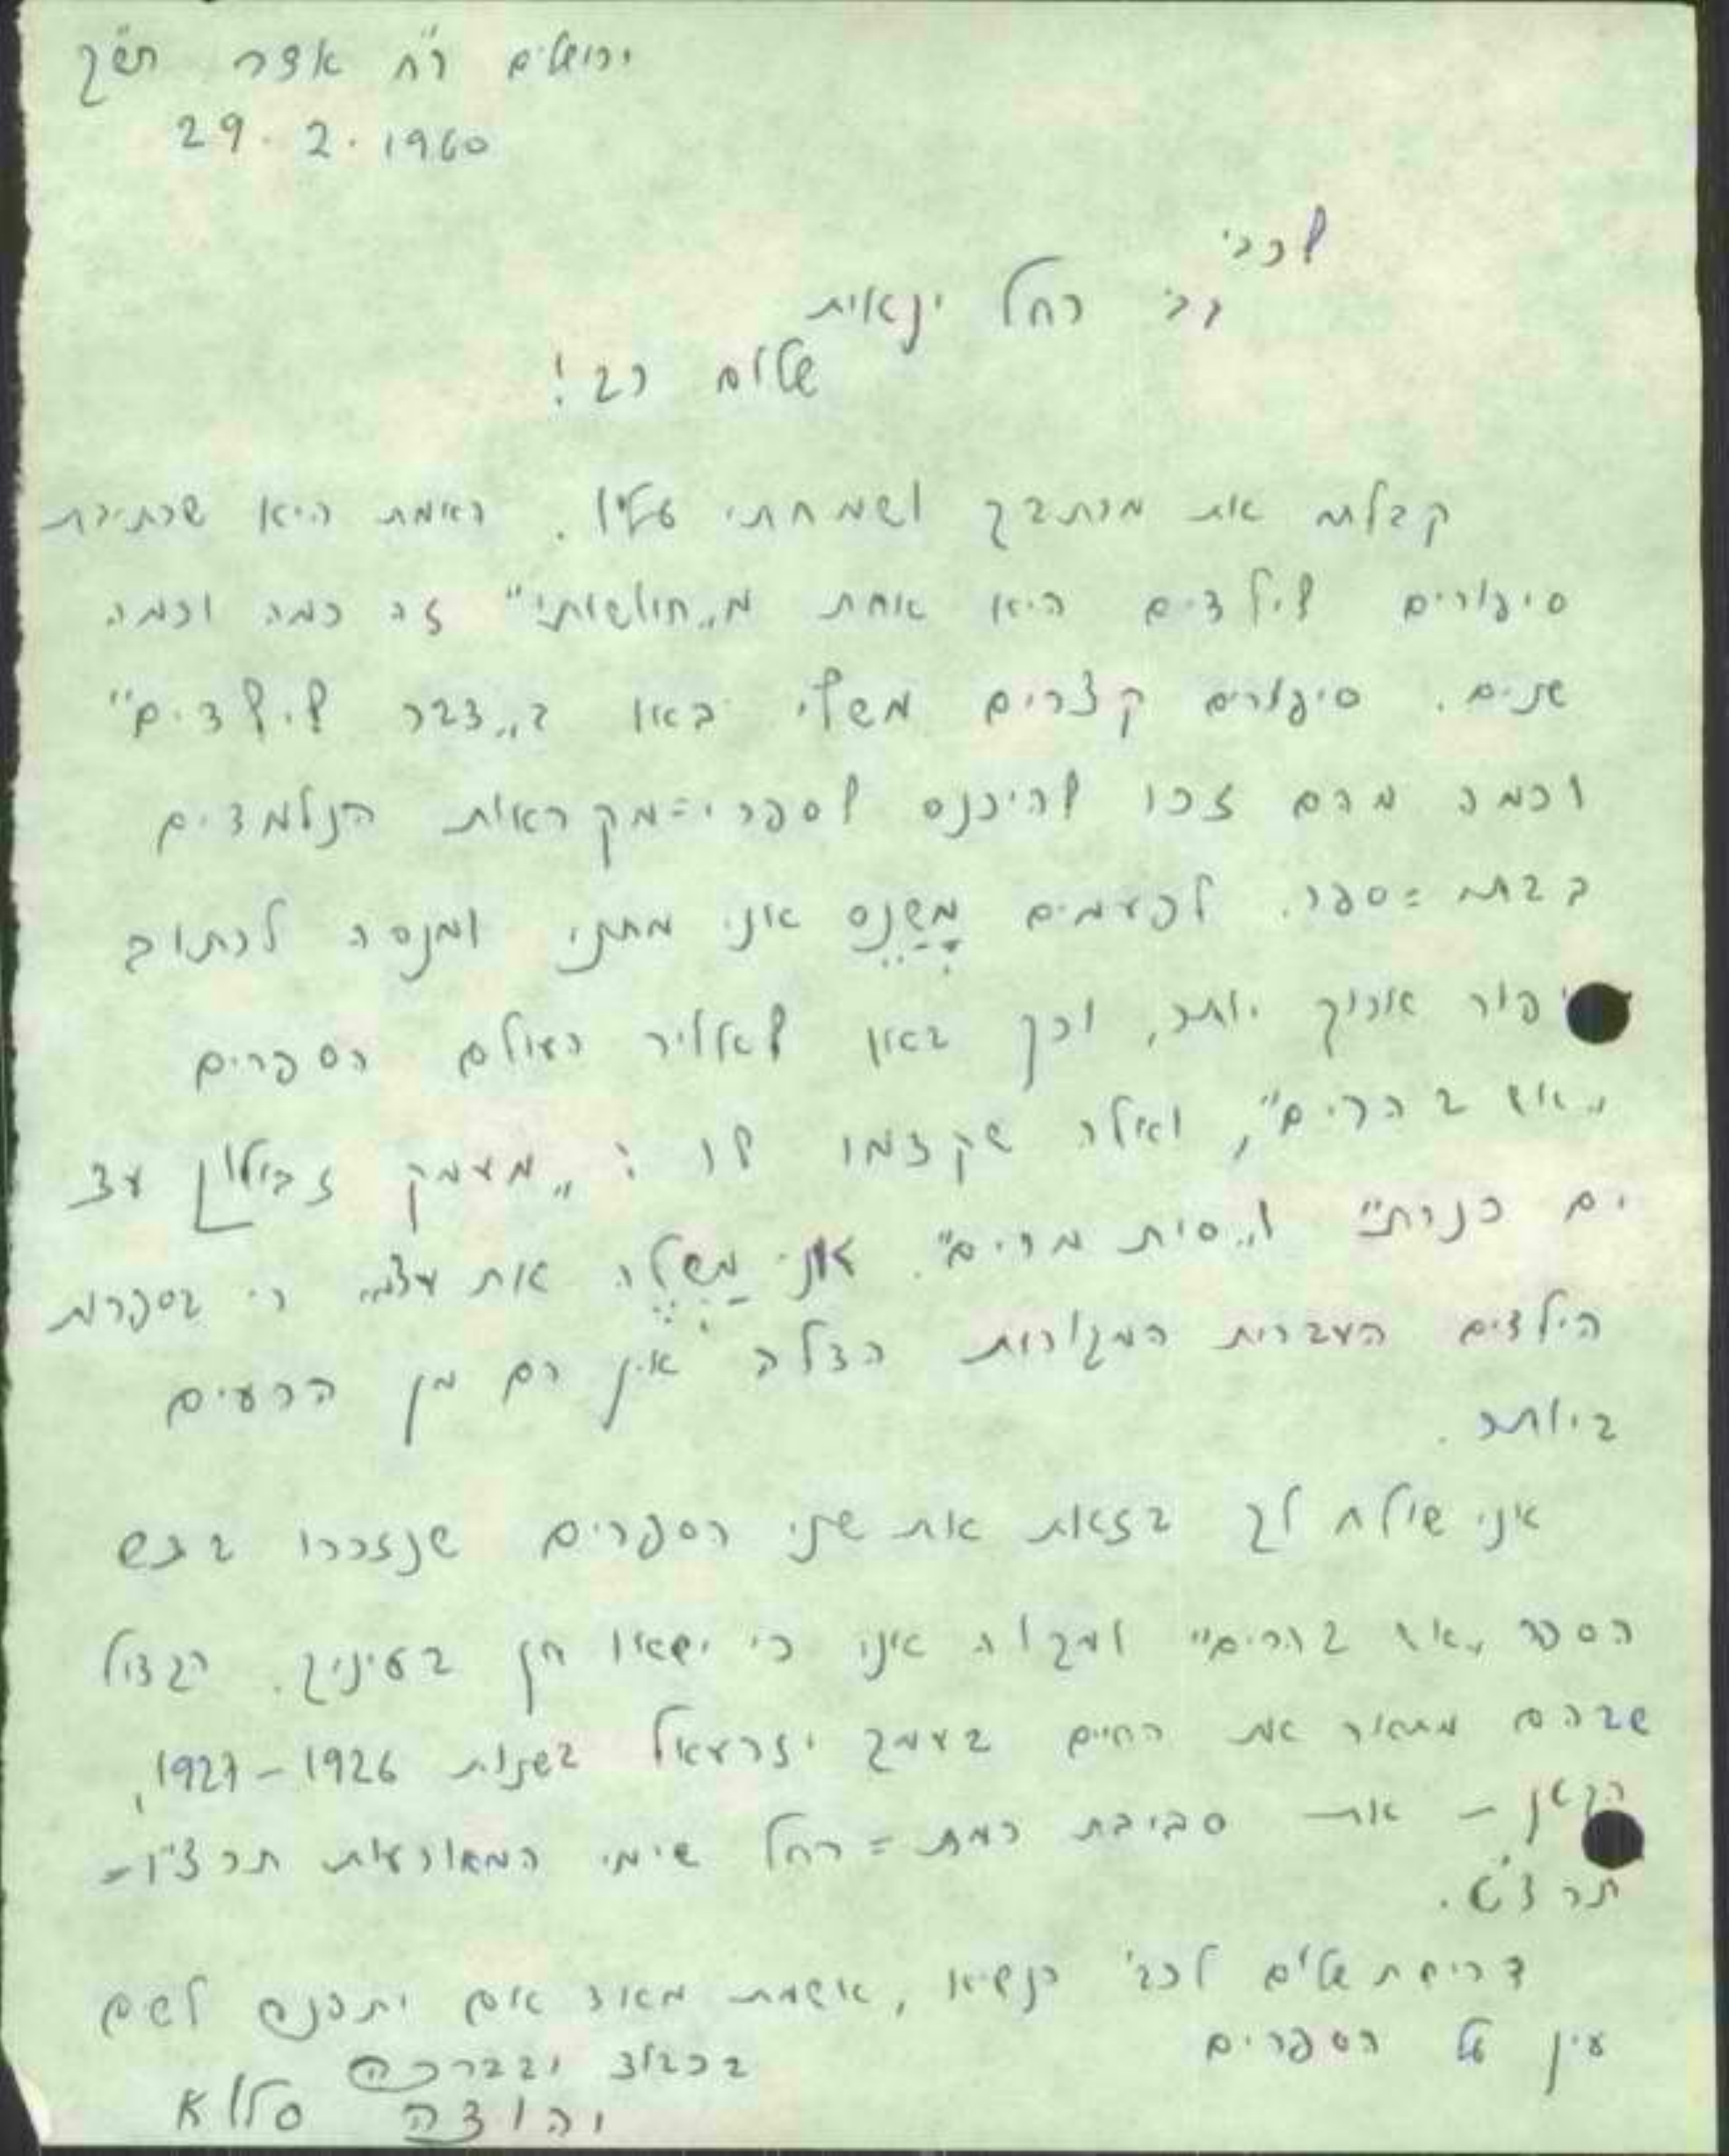 ירושלים ר"ח אדר תש"ך
29. 2. 1960
לכב'
גב' רחל ינאית
שלום רב!
קבלתי את מכתבך ושמחתי עליו. האמת היא שכתיבת
סיפורים לילדים היא אחת מ„חולשותי" זה כמה וכמה
שנים. סיפורים קצרים משלי באו ב„דבר לילדים"
וכמה מהם זכו להיכנס לספרי=מקראות הנלמדים
בבתי=ספר. לפעמים מְשַנֵס אני מתני ומנסה לכתוב
סיפור ארוך יותר, וכך באו לאויר העולם הספרים
„אש בהרים", ואלה שקדמו לו: „מעמק זבולון עד
ים כנרת" ו„סית מרים". אני מַשְלֶה את עצמי כי בספרות
הילדים העברית המקורית הדלה אין הם מן הרעים
ביותר.
אני שולח לך בזאת את שני הספרים שנזכרו בשם
הספר „אש בהרים" ומקוה אני כי ישאו חן בעיניך. הגדול
שבהם מתאר את החיים בעמק יזרעאל בשנות 1926–1927,
הקטן – את סביבת רמת=רחל שימי המאורעות תרצ"ו–
תרצ"ט.
דרישת שלום לכב' הנשיא, אשמח מאוד אם יתפנה לשים
עין על הספרים
בכבוד ובברכה
יהודה סלוא